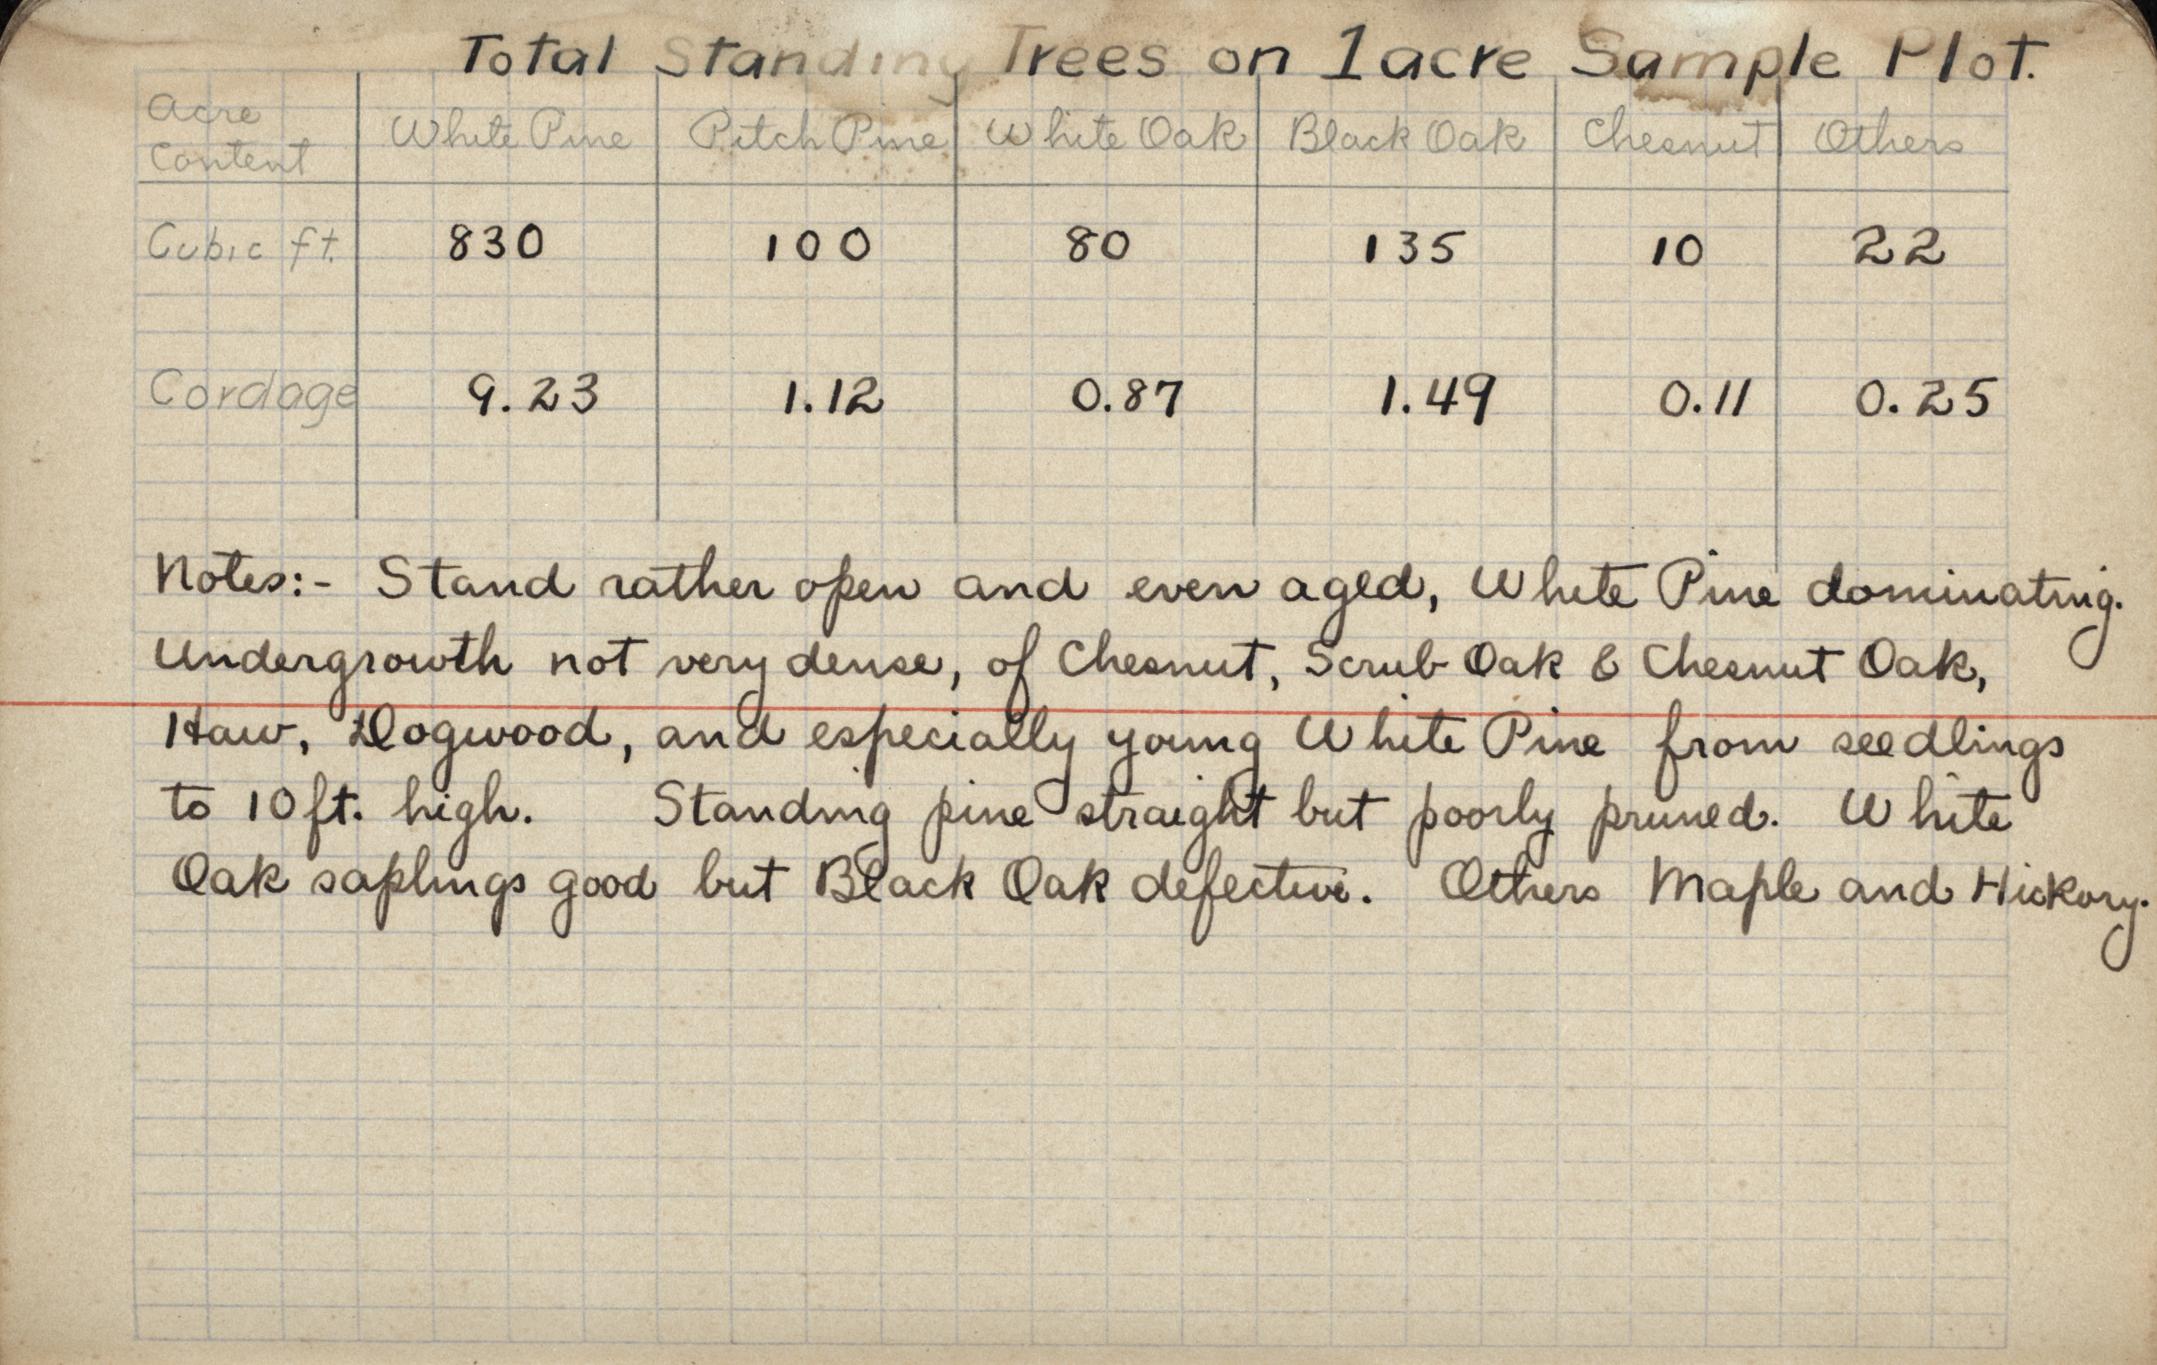 Total Standing Trees on 1 acre Sample Plot.
Acre Content White Pine Pitch Pine White Oak Black Oak Chesnut Others
Cubic ft. 830 100 80 135 10 22
Cordage 9.23 1.12 0.87 1.49 0.11 0.25
Notes:- Stand rather open and even aged, White Pine dominating.
Undergrowth not very dense, of Chesnut, Scrub Oak & Chesnut Oak,
Haw, Dogwood, and especially young White Pine from seedlings
to 10 ft. high. Standing pine straight but poorly pruned. White
Oak saplings good but Black Oak defective. Others Maple and Hickory.